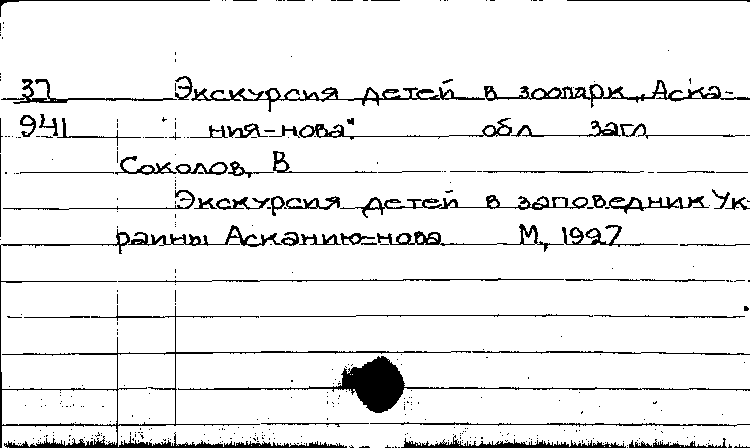 37 Экскурсия детей в зоопарк „Аска-
941 ния-нова". обл загл
Соколов, В
Экскурсия детей в заповедник Ук
раины Асканию-нова М, 1927